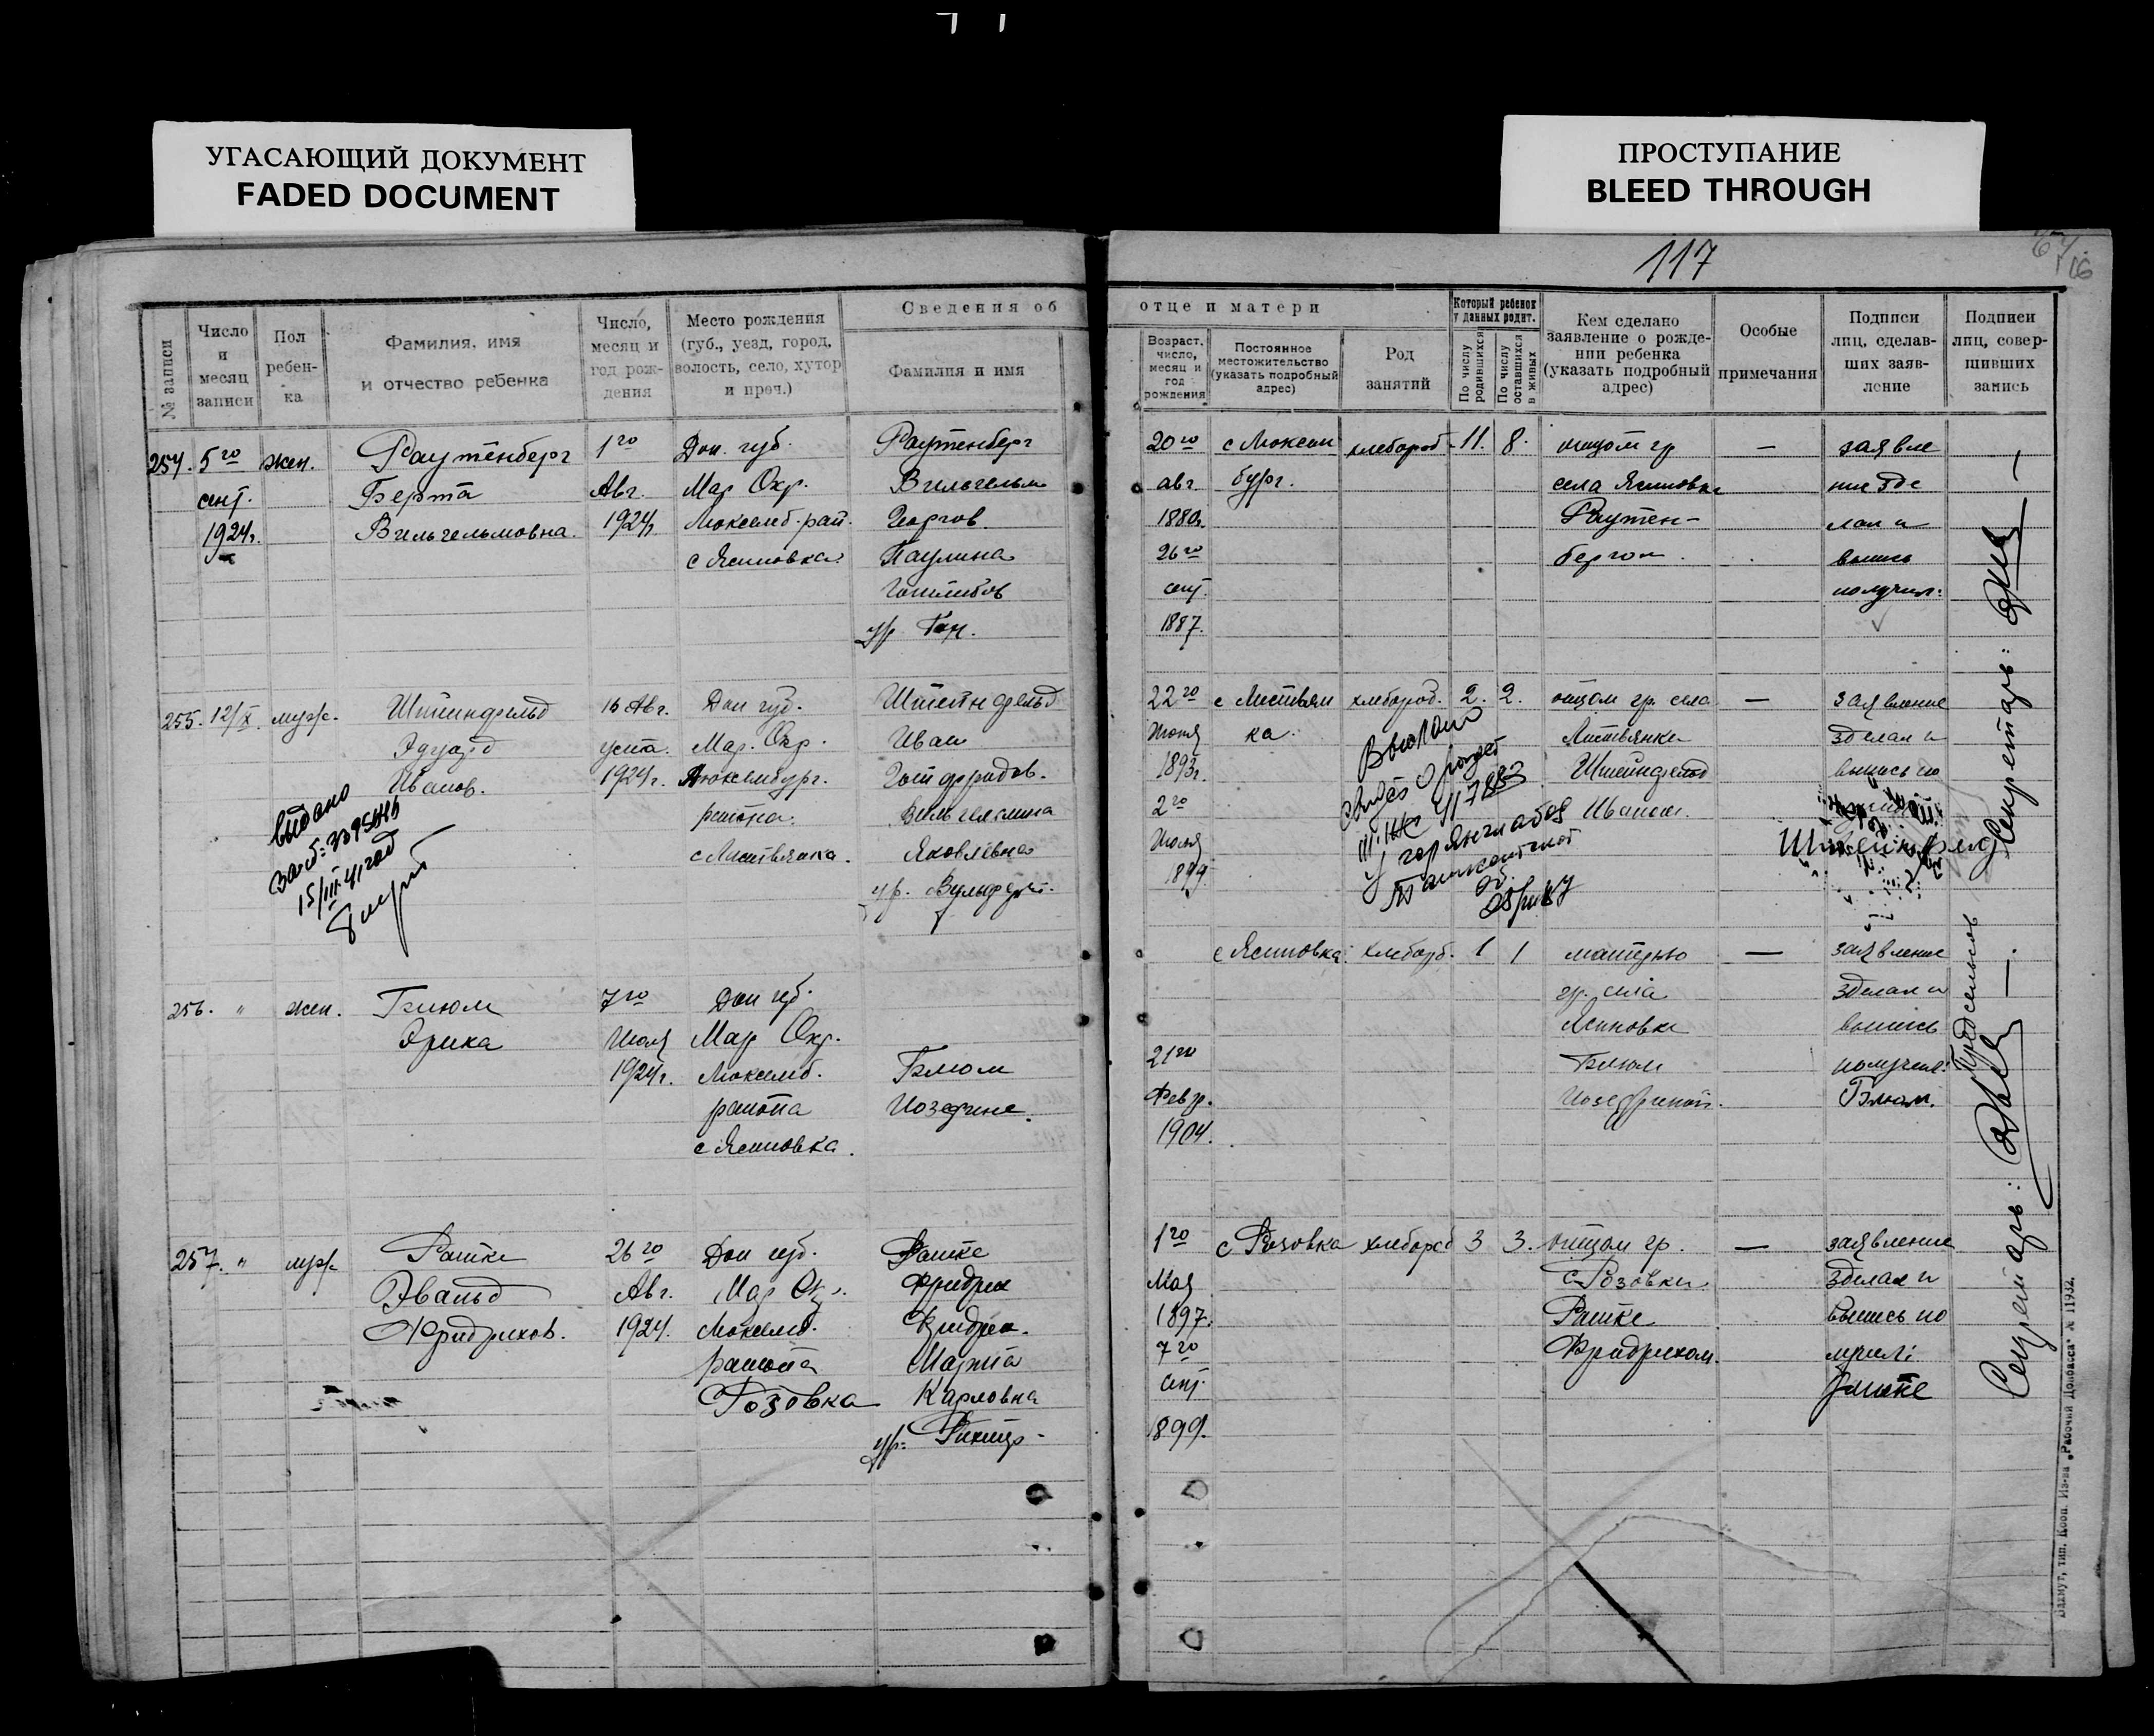 УГАСАЮЩИЙ ДОКУМЕНТ
FADED DOCUMENT
ПРОСТУПАНИЕ
BLEED THROUGH
117
№ записи
Число и месяц записи
Пол ребен-ка
Фамилия, имя и отчество ребенка
Число, месяц и год рож-дения
Место рождения (губ., уезд, город, волость, село, хутор и проч.)
Сведения об отце и матери
Фамилия и имя
Возраст, число, месяц и год рождения
Постоянное местожительство (указать подробный адрес)
Род занятий
Который ребенок у данных родит.
По числу родившихся
По числу оставшихся в живых
Кем сделано заявление о рожде-нии ребенка (указать подробный адрес)
Особые примечания
Подписи лиц, сделав-ших заяв-ление
Подписи лиц, совер-шивших запись
254. 5го жен. Раутенберг 1го Дон. губ. Раутенберг 20го с Люксем хлебороб 11. 8. отцом гр. — заявле
сент. Берта Авг. Мар Окр. Вильгельм авг. бург. села Ясиновка ние зде
1924г. Вильгельмовна. 1924г. Люксемб. рай. Георгов. 1880г. Раутен-
с Ясиновка. Паулина 26го бергом.
Готлибов сент. получил.
ур. 1887.
255. 12/X муж. Штейнфельд 16 Авг. Дон губ. Штейнфельд 22го с Листвян хлебороб. 2. 2. отцом гр. села — заявление
Эдуард Мар. Окр. Иван Июня ка. Листвянка зделал и
Иванов. 1924г. Люксембург. Готфридов. 1893г. Штейнфельд выпись по
района. Вильгельмина 2го Иваном.
с Листвянка. Яковлевна Июля Штейнфельд
ур. 1899
выдано
15/III-41 год
Выдано
с Ясиновка хлебороб. 1 1 матерью — заявление
256. " жен. Блюм 7го Дон губ. гр. села зделал и
Эрика Июля Мар Окр. Ясиновка выпись
1924г. Люксемб. Блюм 21го Блюм получил.
района Иозефине. Февр. Иозефиной. Блюм.
с Ясиновка. 1904.
257. " муж. Рашке 26го Дон губ. Рашке 1го с Розовка хлебороб 3 3. отцом гр. — заявление
Эвальд Авг. Мар Ок. Фридрих Мая с Розовки зделал и
Фридрихов. 1924. Люксемб. Фридрих. 1897. Рашке выпись по
района Марта 7го Фридрихом. лучил:
Розовка Карловна сент. Рашке
ур. Рихтер. 1899.
Секретарь:
Предсельсов
Секретарь:
Бахмут, тип. Кооп. Из-ва „Рабочий Донбасса" № 11932.